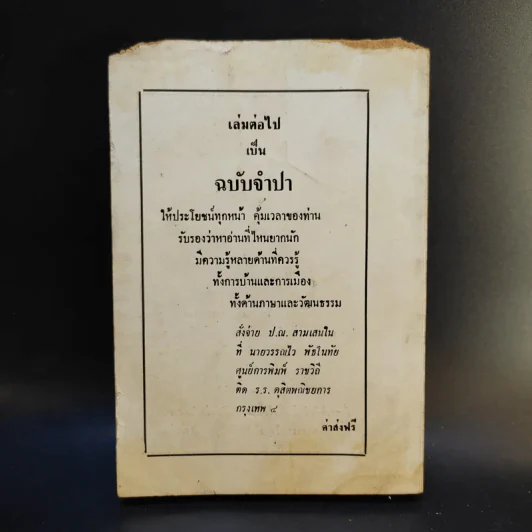 เล่มต่อไป
เป็น
ฉบับจำปา
ให้ประโยชน์ทุกหน้า คุ้มเวลาของท่าน
รับรองว่าหาอ่านที่ไหนยากนัก
มีความรู้หลายด้านที่ควรรู้
ทั้งการบ้านและการเมือง
ทั้งด้านภาษาและวัฒนธรรม
สั่งจ่าย ป.ณ. สามเสนใน
ที่ นายวรรณไว พัธโนทัย
ศูนย์การพิมพ์ ราชวิถี
ติด ร.ร. ดุสิตพณิชยการ
กรุงเทพ ๔
ค่าส่งฟรี